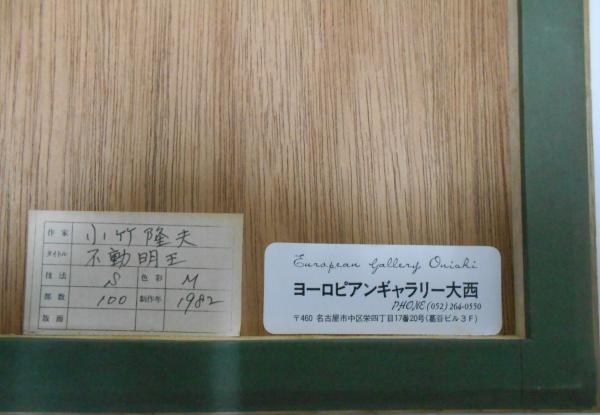 作家 小竹隆夫
タイトル 不動明王
技法 S 色彩 M
部数 100 制作年 1982
版画
European Gallery Onishi
ヨーロピアンギャラリー大西
PHONE (052) 264-0550
〒460 名古屋市中区栄四丁目17番20号(葛谷ビル3F)